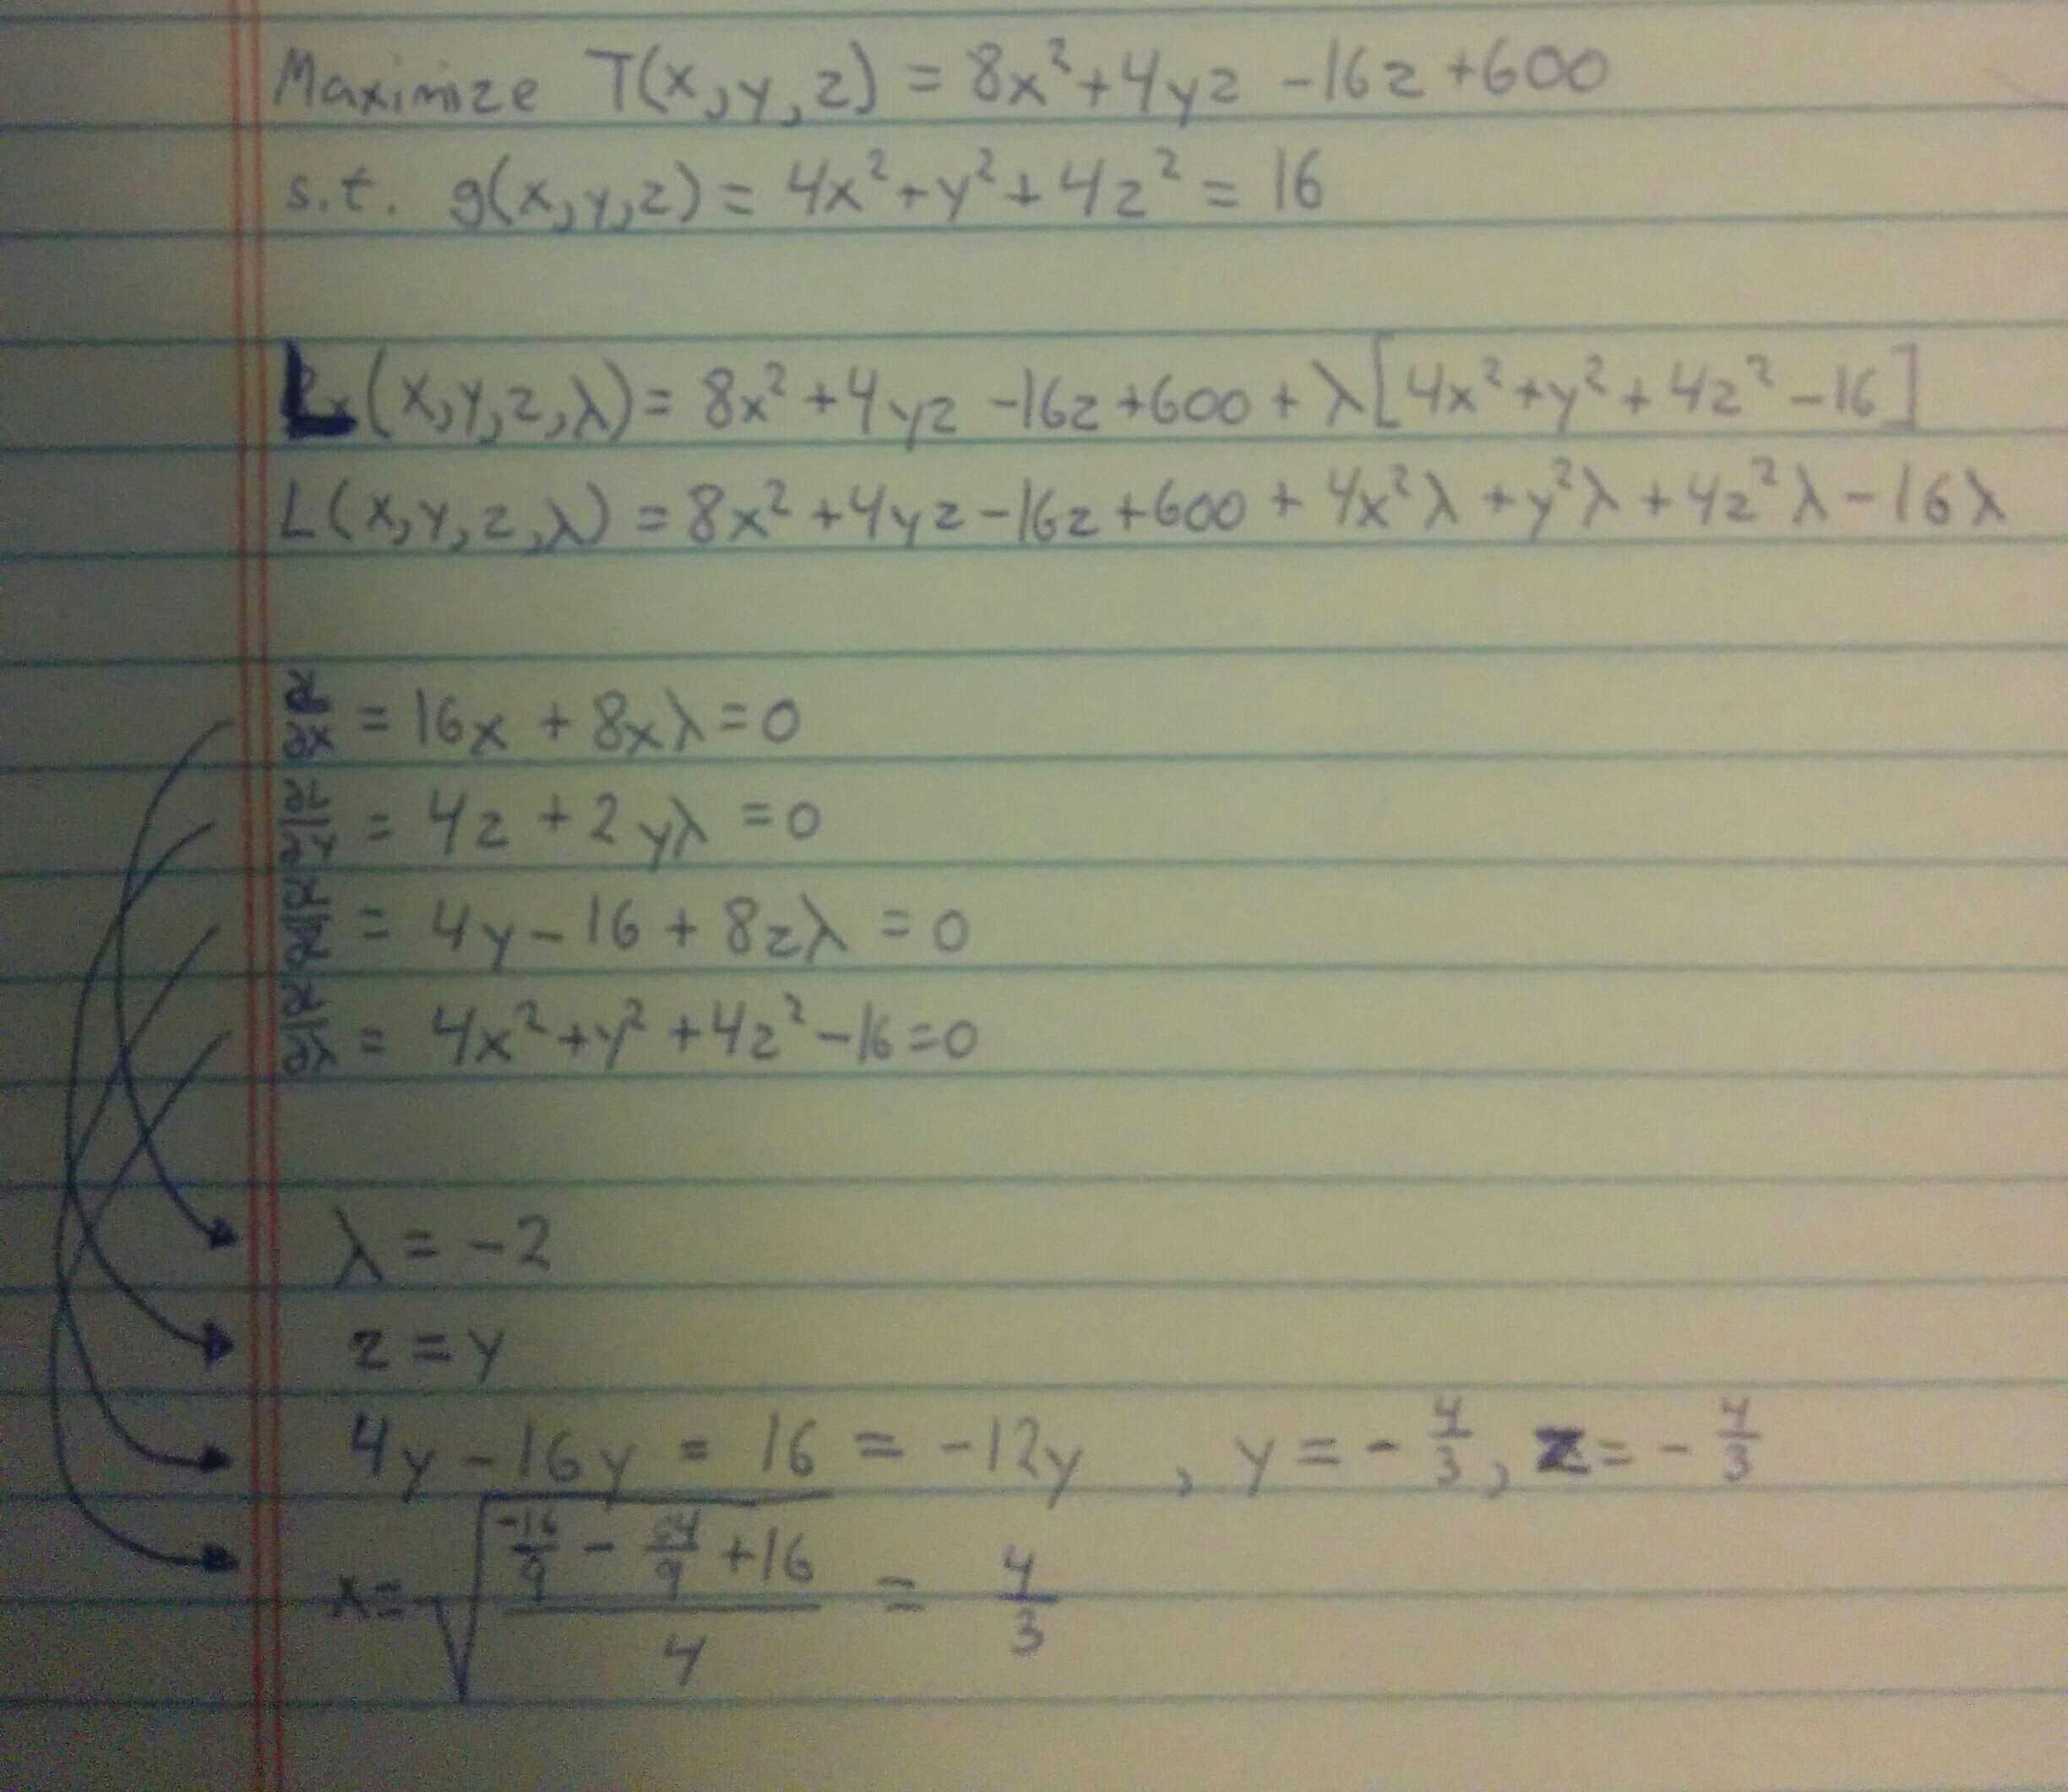 Maximize T(x,y,z) = 8x²+4yz -16z +600
s.t. g(x,y,z) = 4x²+y²+4z² = 16
L(x,y,z,λ) = 8x²+4yz -16z+600 + λ[4x²+y²+4z²-16]
L(x,y,z,λ) = 8x²+4yz-16z+600 + 4x²λ +y²λ +4z²λ - 16λ
∂L/∂x = 16x + 8xλ = 0
∂L/∂y = 4z + 2yλ = 0
∂L/∂z = 4y - 16 + 8zλ = 0
∂L/∂λ = 4x²+y²+4z²-16=0
λ = -2
z = y
4y - 16y = 16 = -12y , y = - 4/3, z = - 4/3
x = √((-16/9 - 64/9 + 16)/4) = 4/3